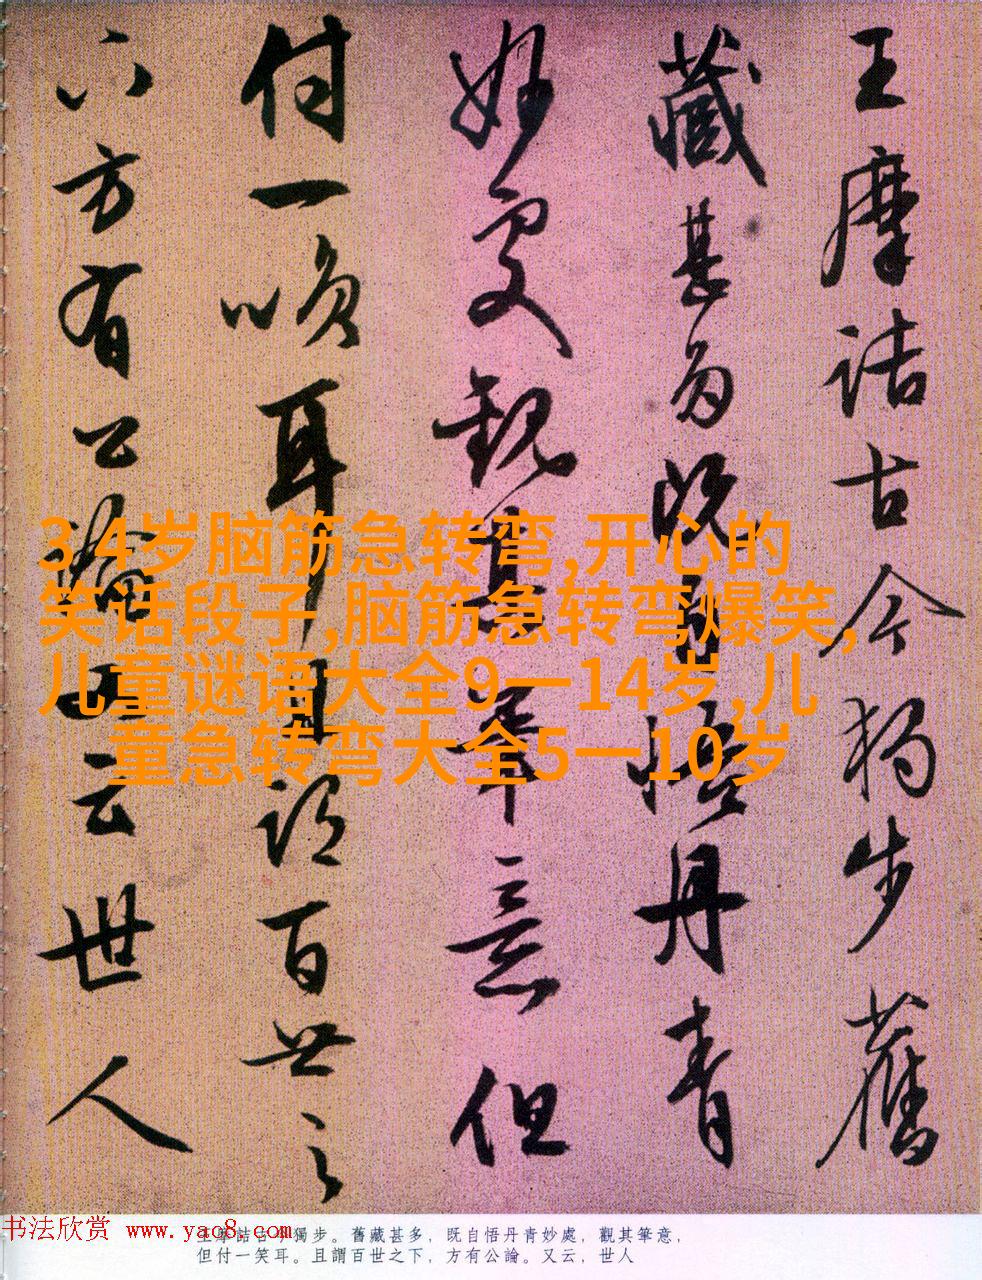 王摩詰古今獨步舊
藏甚多既自悟丹青
妙處觀其筆意但
付一咲耳且謂百世之
下方有公論又云世人
3 4岁脑筋急转弯,开心的
笑话段子,脑筋急转弯爆笑,
儿童谜语大全9一14岁,儿
童急转弯大全5一10岁
书法欣赏 www.yac8.com
王摩詰古今獨步。舊藏甚多，既自悟丹青妙處，觀其筆意，
但付一笑耳。且謂百世之下，方有公論。又云，世人